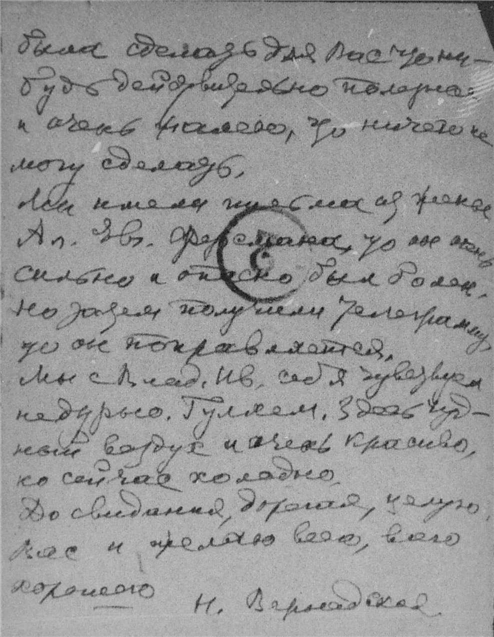 была сделать для Вас что ни-
будь действительно полезное
и очень жалею, что ничего не
могу сделать.
Мы имели письма от жены
Ал. Евг. Ферсмана, что он очень
сильно и опасно был болен,
но затем получили телеграмму
что он поправляется.
Мы с Влад. Ив. себя чувствуем
недурно. Гуляем. Здесь чуд-
ный воздух и очень красиво,
но сейчас холодно.
До свидания, дорогая, целую
Вас и желаю всего, всего
хорошего
Н. Вернадская